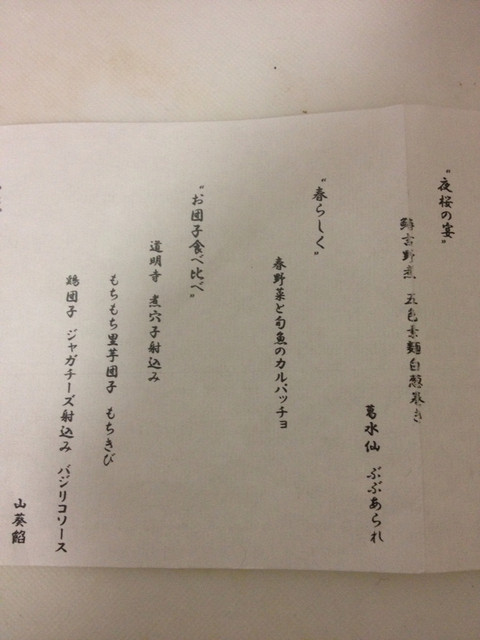 "夜桜の宴"
鱒吉野煮 五色素麺白髪巻き
葛水仙 ぶぶあられ
"春らしく"
春野菜と旬魚のカルパッチョ
"お団子食べ比べ"
道明寺 煮穴子射込み
もちもち里芋団子 もちきび
鶏団子 ジャガチーズ射込み バジリコソース
山葵餡